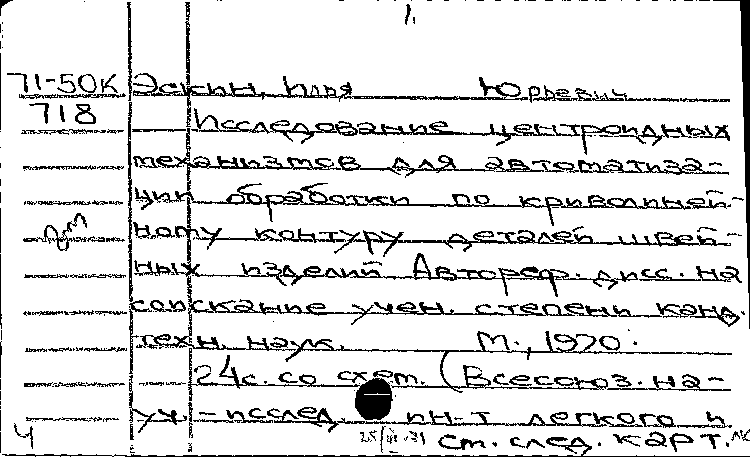 1.
71-50К Эскин, Илья Юрьевич
718
Исследование центроидных
механизмов для автоматиза-
ции обработки по криволиней-
ному контуру деталей швей-
ных изделий Автореф. дисс. на
соискание учен. степени канд.
техн. наук. М., 1970.
24с. со схем. (Всесоюз. на-
уч.-исслед. ин-т легкого и
Ч см. след. карт.